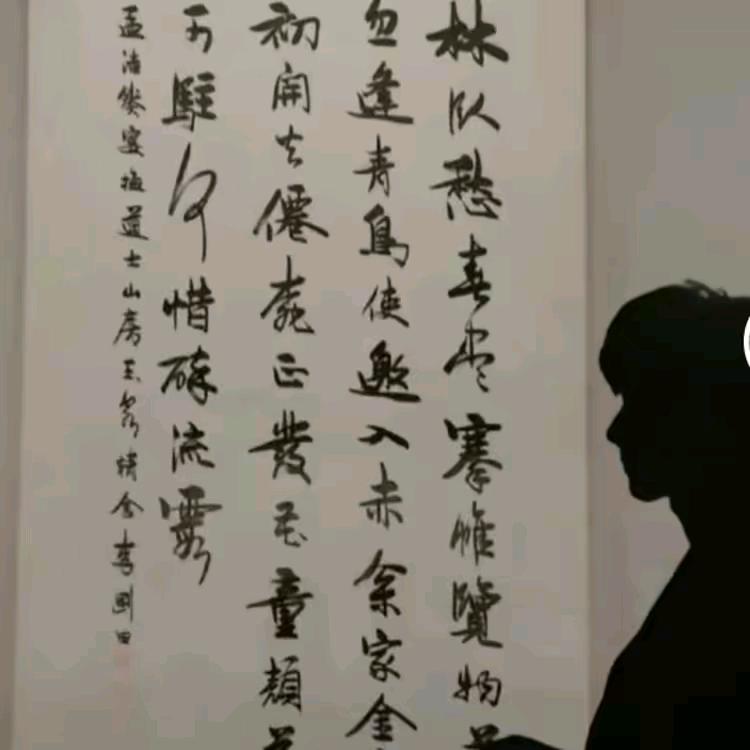 林臥愁春盡搴帷覽物
忽逢青鳥使邀入赤松家金
初開火僊桃正發花童顏
可駐何惜醉流霞
孟浩然宴梅道士山房 李剛田